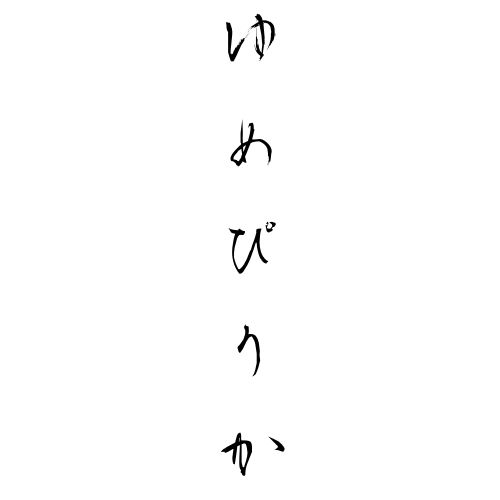 ゆめぴりか